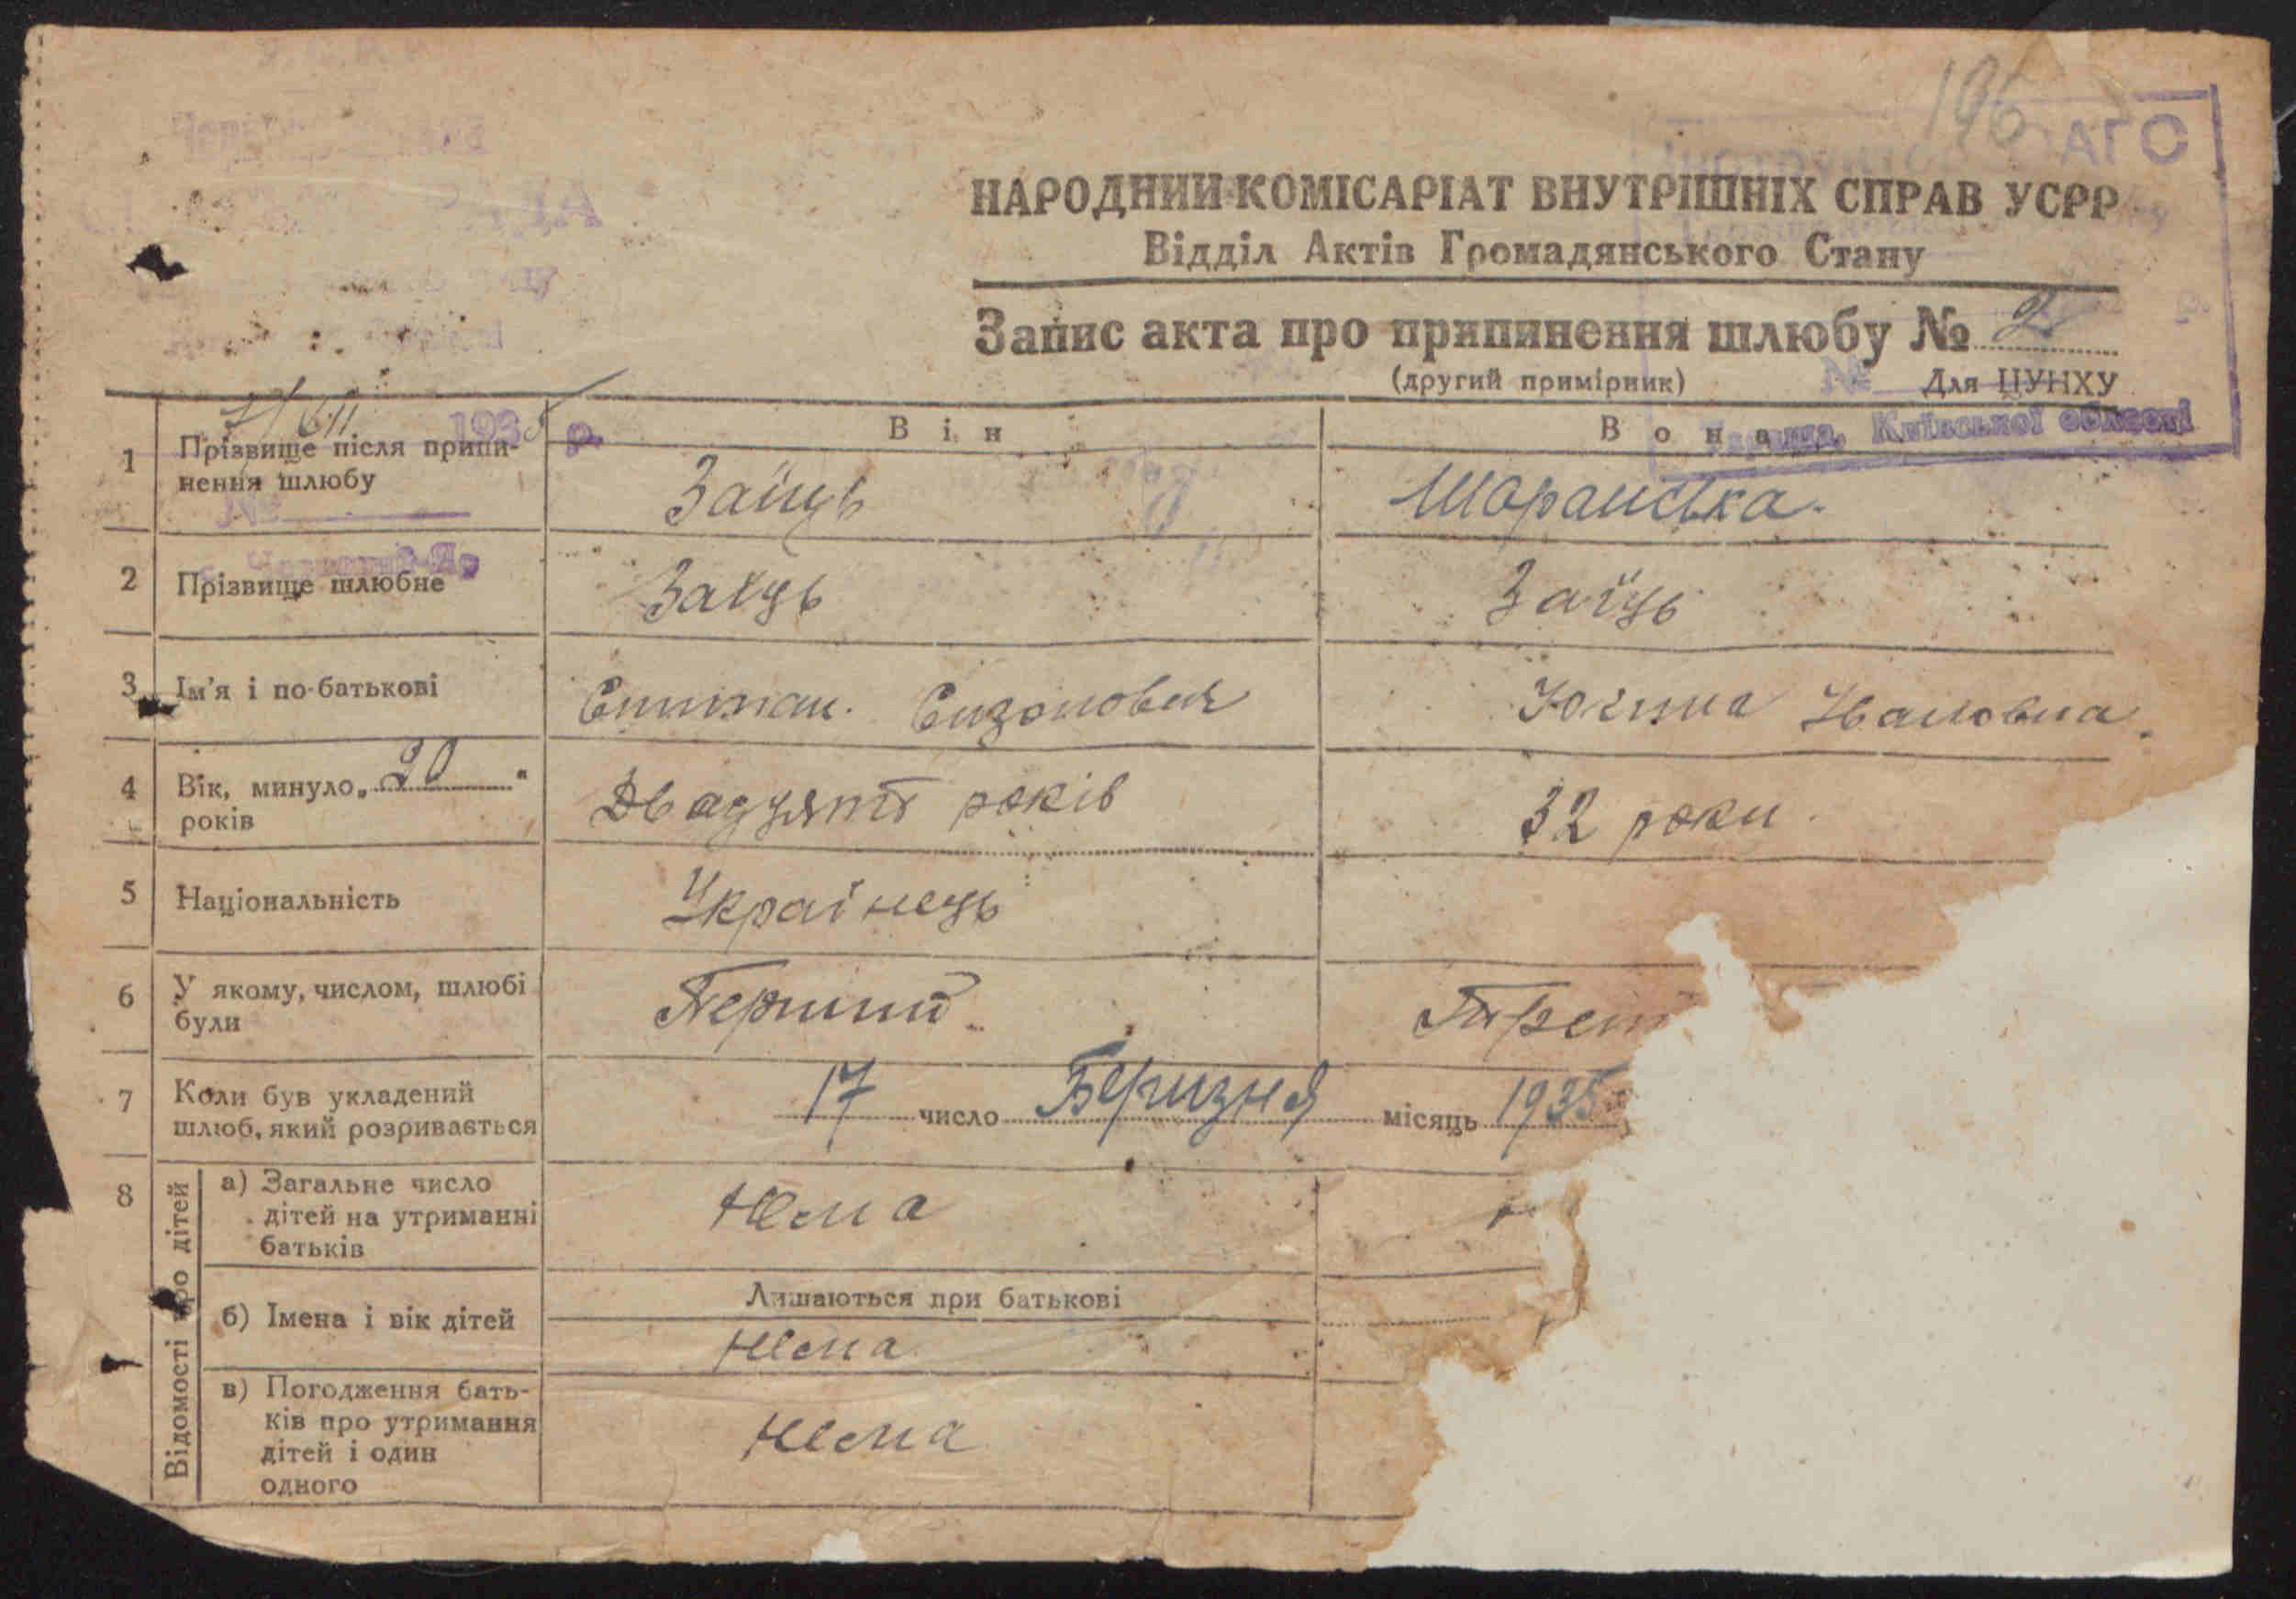 196
АГС
НАРОДНИЙ КОМІСАРІАТ ВНУТРІШНІХ СПРАВ УСРР
Відділ Актів Громадянського Стану
Запис акта про припинення шлюбу № 2
(другий примірник)
Для ЦУНХУ
193 р.
Київської області
Він
Вона
1 Прізвище після припи-
нення шлюбу
Заїць
Шаранська.
№
2 Прізвище шлюбне
Заїць
Заїць
3 Ім'я і по-батькові
Сизонович
Ивановна
4 Вік, минуло „20"
років
Двадцять років
32 роки.
5 Національність
Українець
6 У якому, числом, шлюбі
були
Перший
Трет
7 Коли був укладений
шлюб, який розривається
17 число Беризня місяць 1935
8 Відомості про дітей
а) Загальне число
дітей на утриманні
батьків
Нема
б) Імена і вік дітей
Лишаються при батькові
Нема
в) Погодження бать-
ків про утримання
дітей і один
одного
Нема